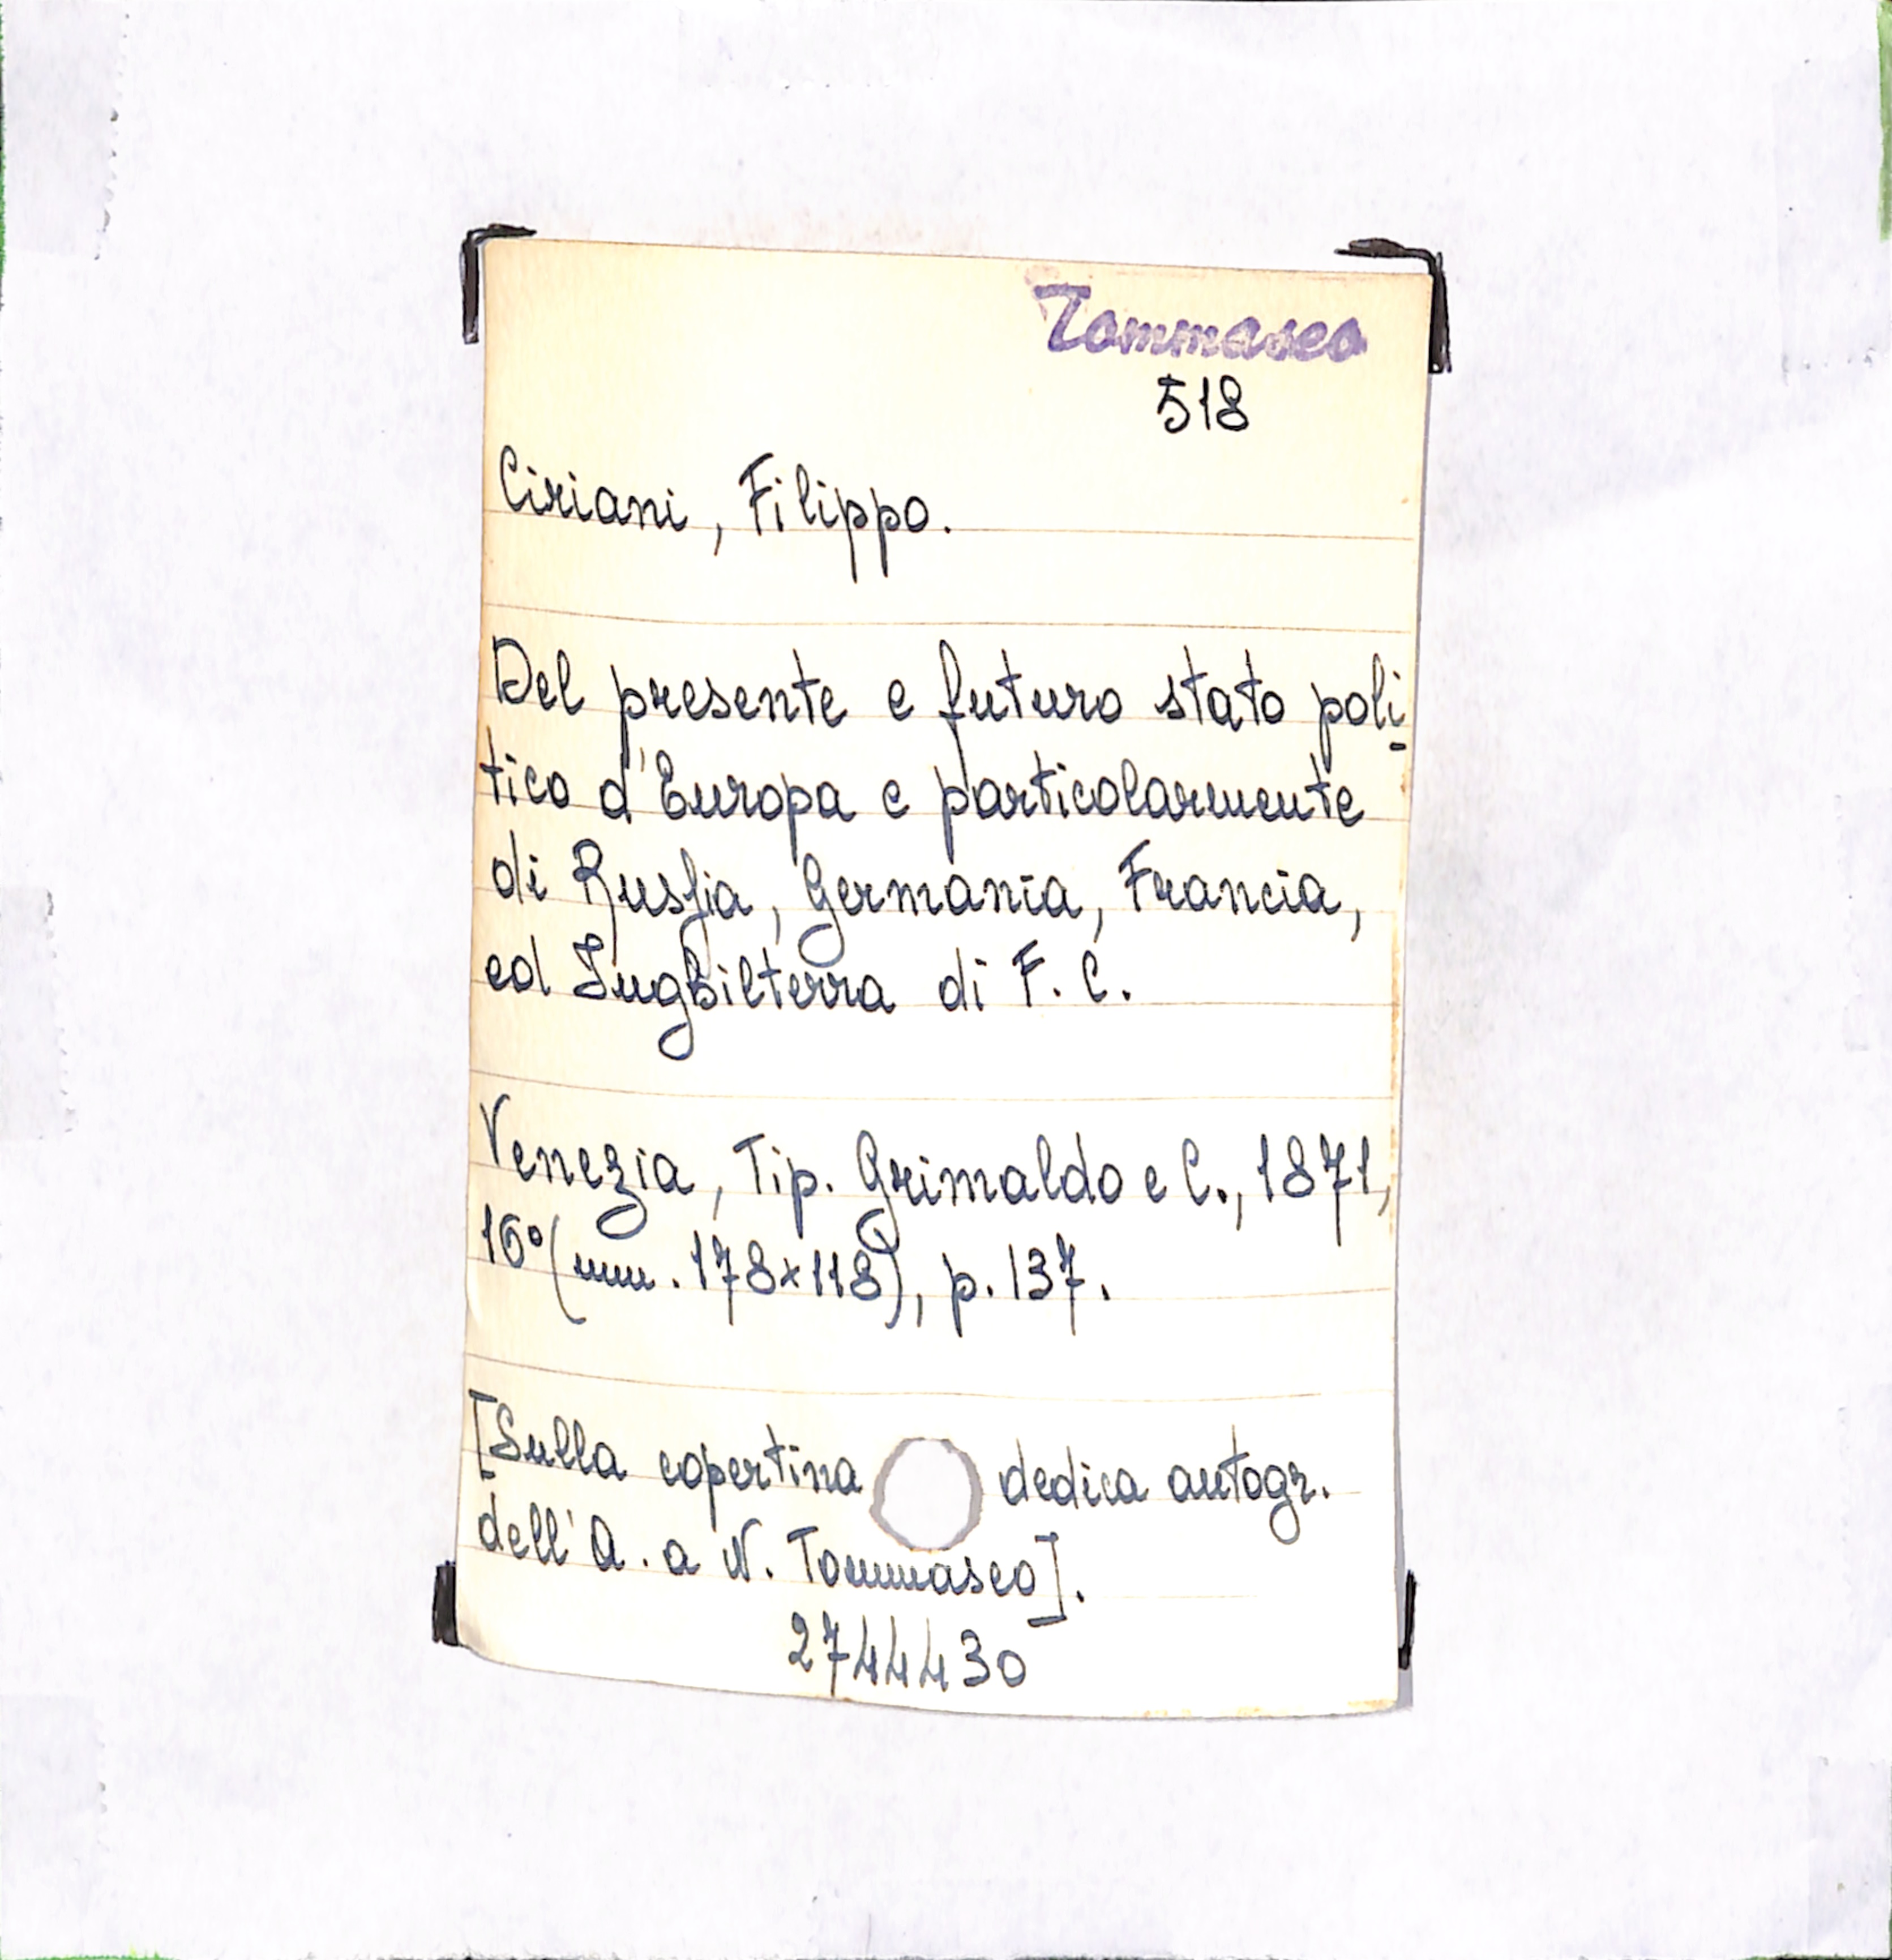 Tommaseo
518
Ciriani, Filippo.
Del presente e futuro stato poli-
tico d'Europa e particolarmente
di Russia, Germania, Francia,
ed Inghilterra di F. C.
Venezia, Tip. Grimaldo e C., 1871,
16° (mm. 178×118), p. 137.
[Sulla copertina dedica autogr.
dell'A. a N. Tommaseo].
2744430